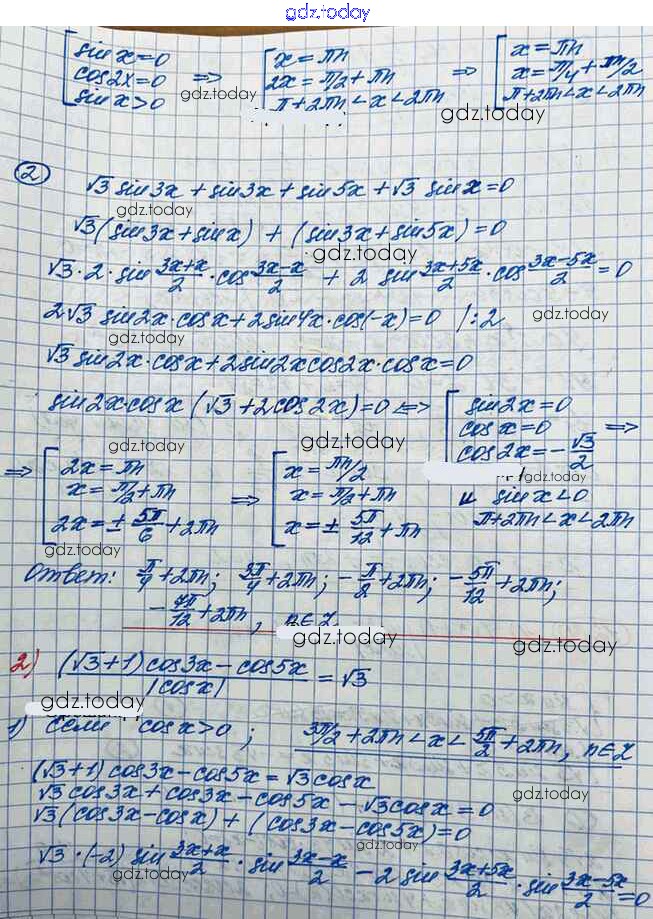 gdz.today
[ sin x = 0 cos 2x = 0 sin x > 0 ⇒ [ x = πn 2x = π/2 + πn π + 2πn < x < 2πn ⇒ [ x = πn x = π/4 + πn/2 π + 2πn < x < 2πn
gdz.today
gdz.today
gdz.today
② √3 sin 3x + sin 3x + sin 5x + √3 sin x = 0
gdz.today
√3 (sin 3x + sin x) + (sin 3x + sin 5x) = 0
√3 · 2 · sin (3x+x)/2 · cos (3x-x)/2 + 2 sin (3x+5x)/2 · cos (3x-5x)/2 = 0
2√3 sin 2x · cos x + 2 sin 4x · cos(-x) = 0 | : 2
gdz.today
√3 sin 2x · cos x + 2 sin 2x cos 2x · cos x = 0
sin 2x · cos x (√3 + 2 cos 2x) = 0 ⟺ [ sin 2x = 0 cos x = 0 cos 2x = -√3/2 ⇒
и sin x < 0
π + 2πn < x < 2πn
gdz.today
gdz.today
⇒ [ 2x = πn x = π/2 + πn 2x = ± 5π/6 + 2πn ⇒ [ x = πn/2 x = π/2 + πn x = ± 5π/12 + πn
gdz.today
gdz.today
Ответ: π/4 + 2πn; 3π/4 + 2πn; -π/2 + 2πn; -5π/12 + 2πn;
-7π/12 + 2πn, n ∈ Z
gdz.today
gdz.today
2) ((√3+1) cos 3x - cos 5x)/|cos x| = √3
gdz.today
1) Если cos x > 0; 3π/2 + 2πn < x < 5π/2 + 2πn, n ∈ Z
(√3+1) cos 3x - cos 5x = √3 cos x
√3 cos 3x + cos 3x - cos 5x - √3 cos x = 0
gdz.today
√3 (cos 3x - cos x) + (cos 3x - cos 5x) = 0
gdz.today
√3 · (-2) sin (3x+x)/2 · sin (3x-x)/2 - 2 sin (3x+5x)/2 · sin (3x-5x)/2 = 0
gdz.today